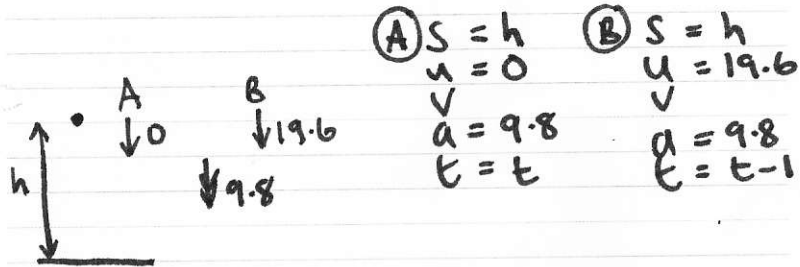 A
↓0
B
↓19.6
↓9.8
h
Ⓐ S = h
u = 0
v
a = 9.8
t = t
Ⓑ S = h
u = 19.6
v
a = 9.8
t = t-1